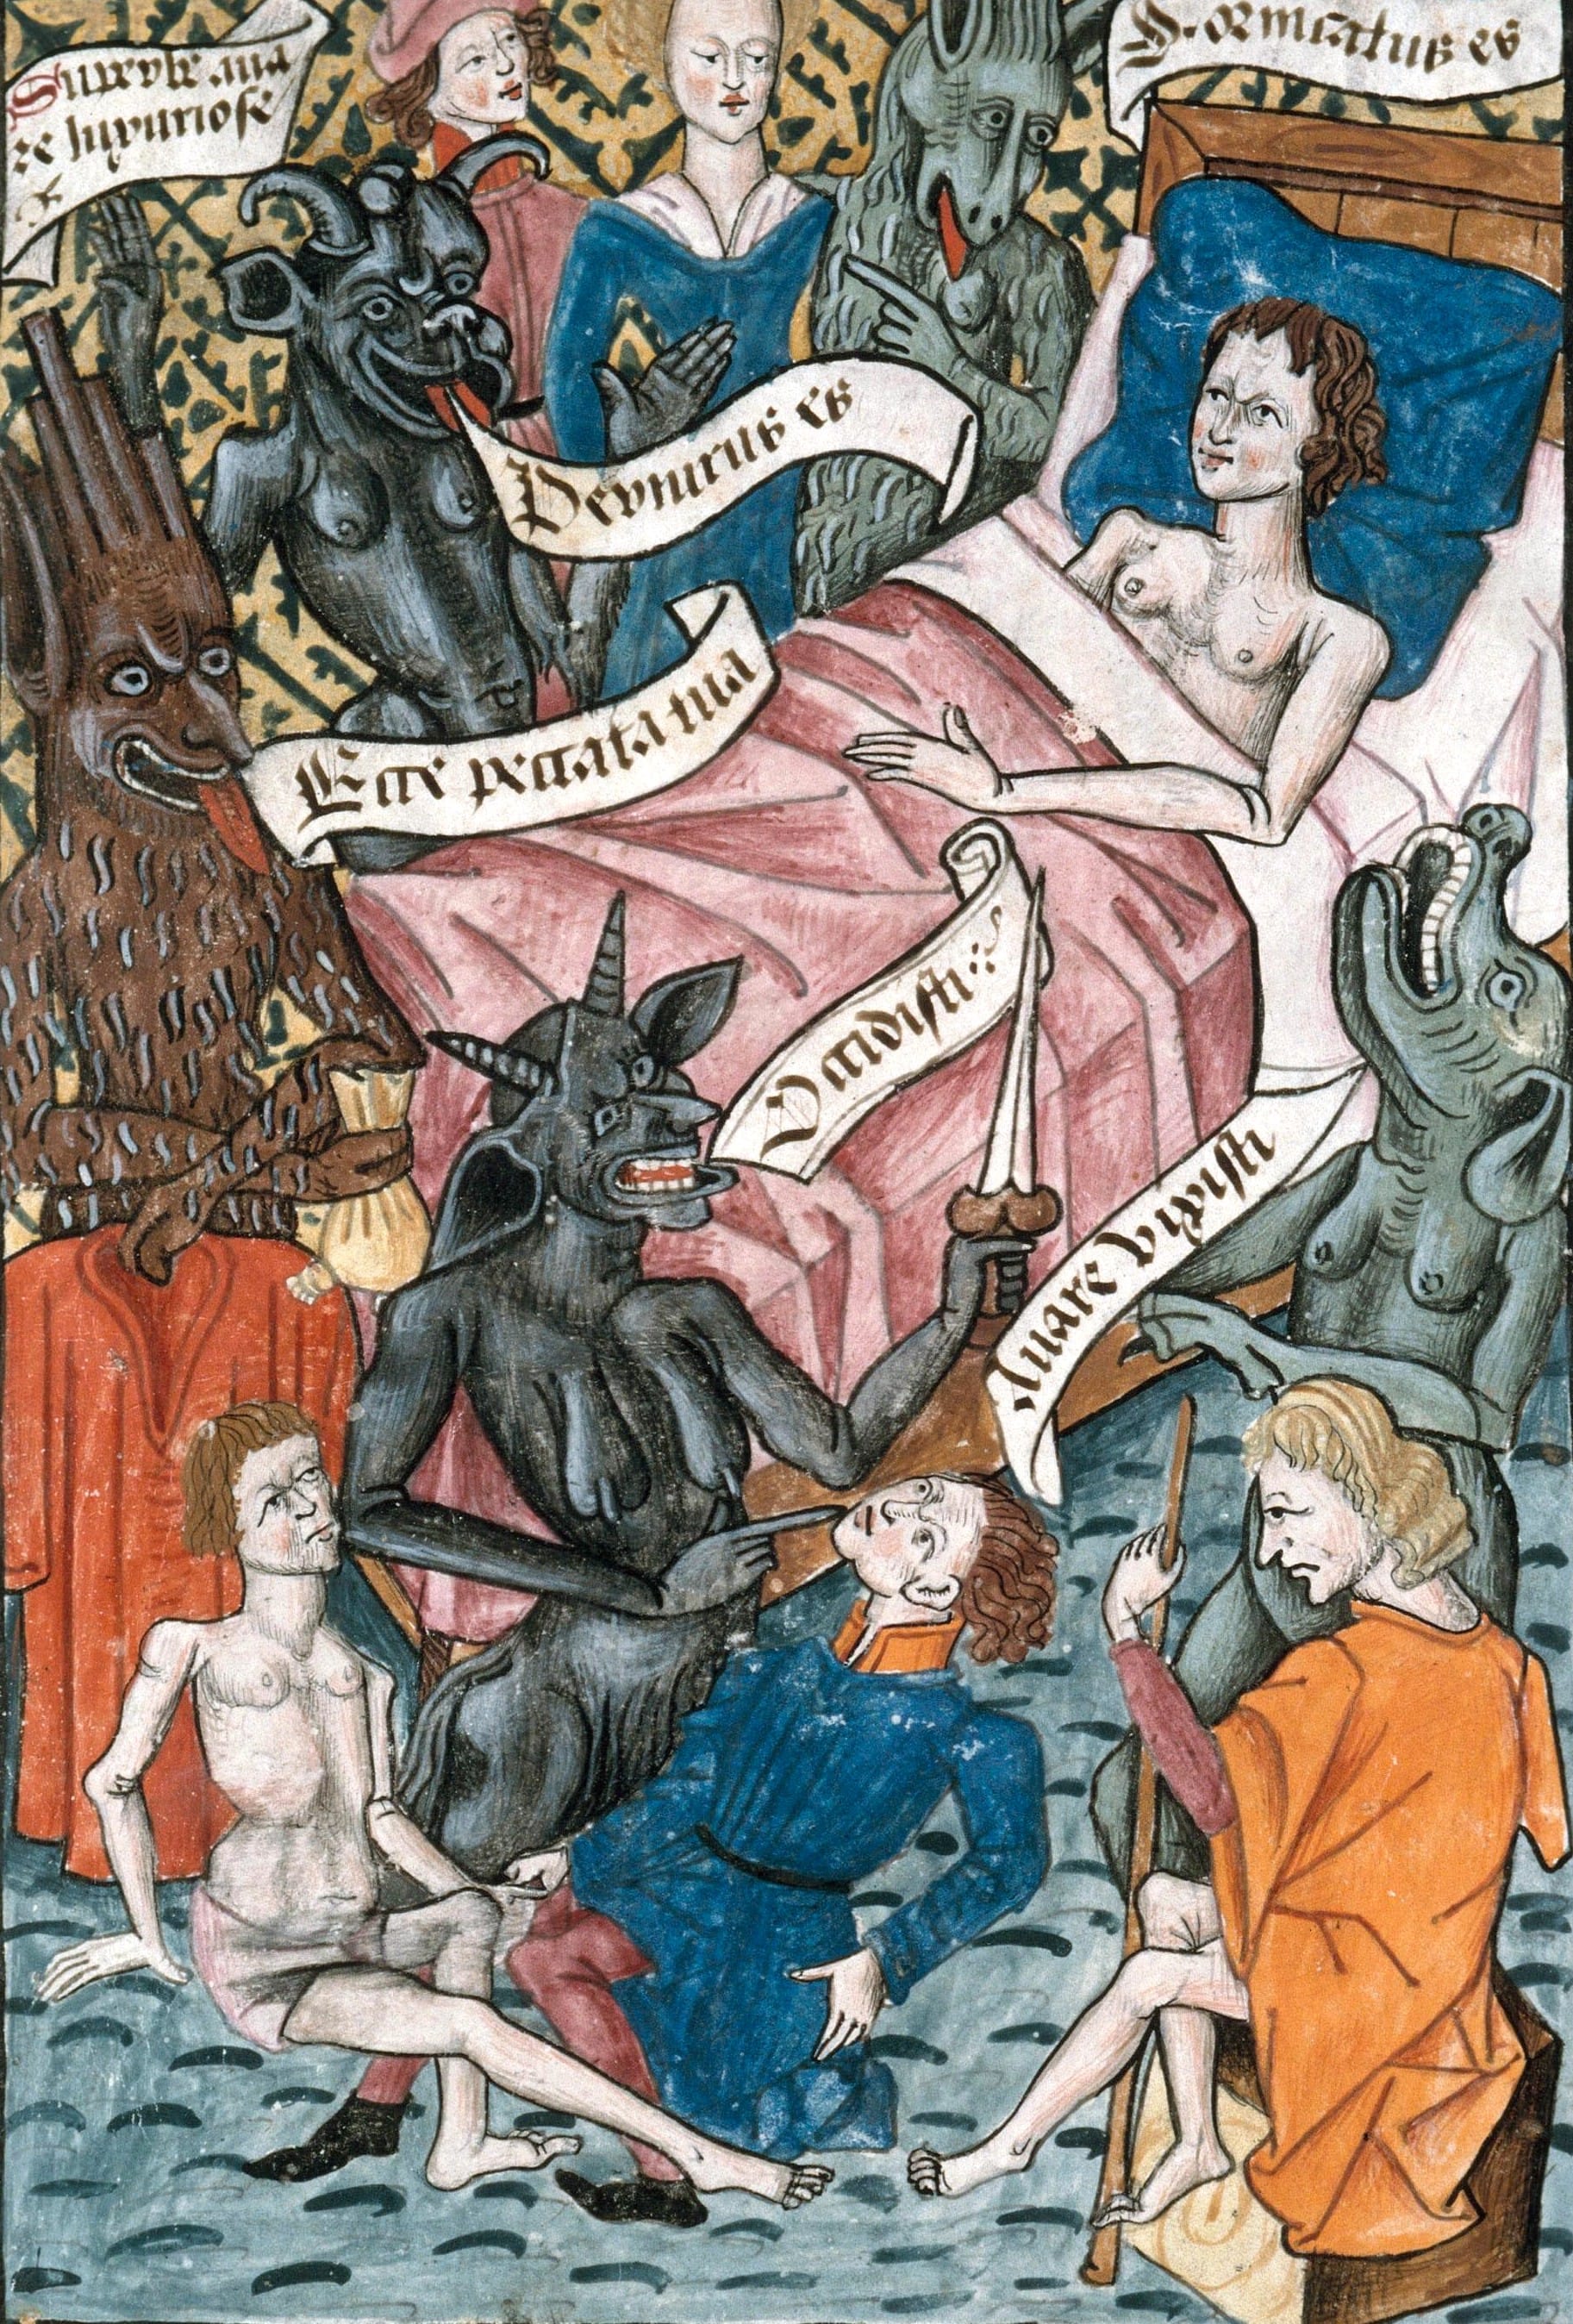 Superbe aua
re luxuriose
&
Fornicatus es
Periurus es
Ecce peccata tua
Occidisti
Auare vixisti